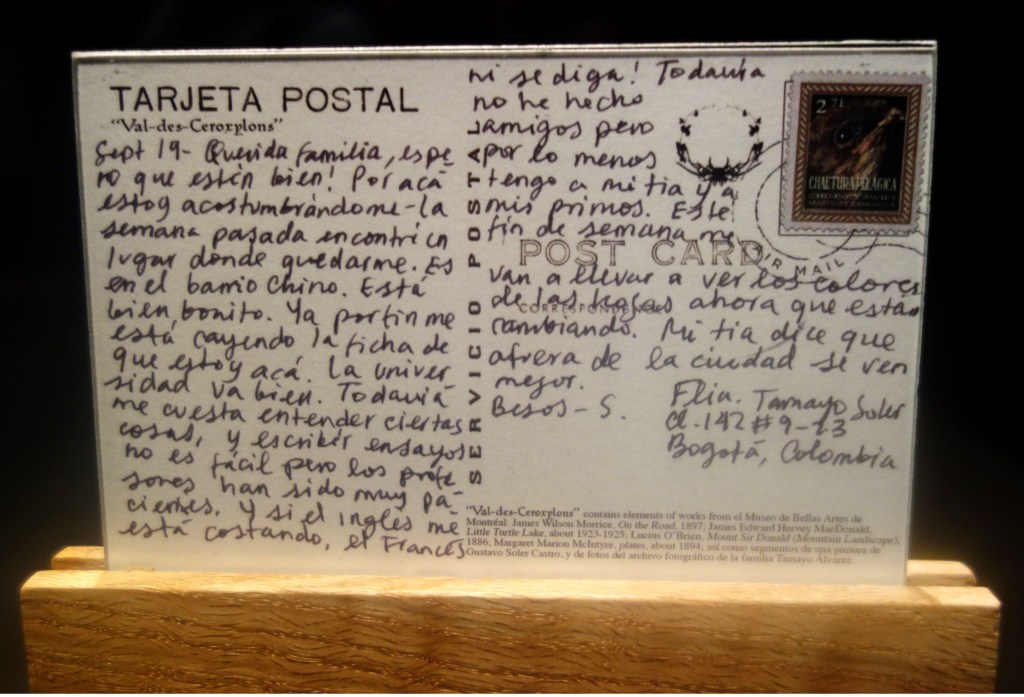 TARJETA POSTAL
"Val-des-Ceroxylons"
Sept 19- Querida familia, espe-
ro que estén bien! Por acá
estoy acostumbrándome-la
semana pasada encontré un
lugar donde quedarme. Es
en el barrio chino. Está
bien bonito. Ya por fin me
está cayendo la ficha de
que estoy acá. La univer
sidad va bien. Todavía
me cuesta entender ciertas
cosas, y escribir ensayos
no es fácil pero los profe
sores han sido muy pa-
cientes. Y si el inglés me
está costando, el Francés
SERVICIO POSTAL
ni se diga! Todavía
no he hecho
amigos pero
por lo menos
tengo a mi tía y a
mis primos. Este
fin de semana me
van a llevar a ver los colores
de las hojas ahora que están
cambiando. Mi tía dice que
afuera de la ciudad se ven
mejor.
Besos - S.
POST CARD
CORRESPONDENCE
2
CHAETURA PELAGICA
CHIMNEY SWIFT
AIR MAIL
Flia. Tamayo Soler
Cl. 142 # 9-13
Bogotá, Colombia
"Val-des-Ceroxylons" contains elements of works from el Museo de Bellas Artes de
Montréal: James Wilson Morrice, On the Road, 1897; James Edward Hervey MacDonald,
Little Turtle Lake, about 1923-1925; Lucius O'Brien, Mount Sir Donald (Mountain Landscape),
1886; Margaret Marion McIntyre, plates, about 1894; así como segmentos de una pintura de
Gustavo Soler Castro, y de fotos del archivo fotográfico de la familia Tamayo Álvarez.